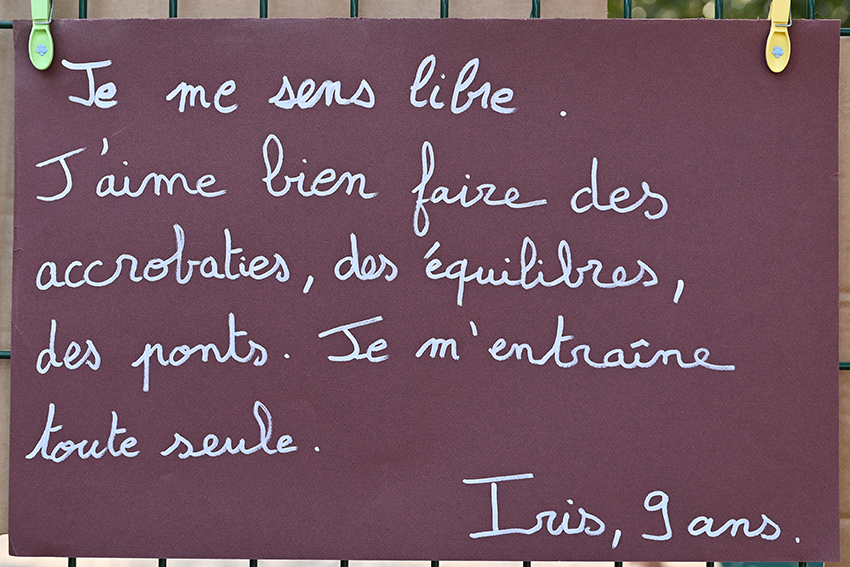 Je me sens libre.
J'aime bien faire des
accrobaties, des équilibres,
des ponts. Je m'entraîne
toute seule.
Iris, 9 ans.